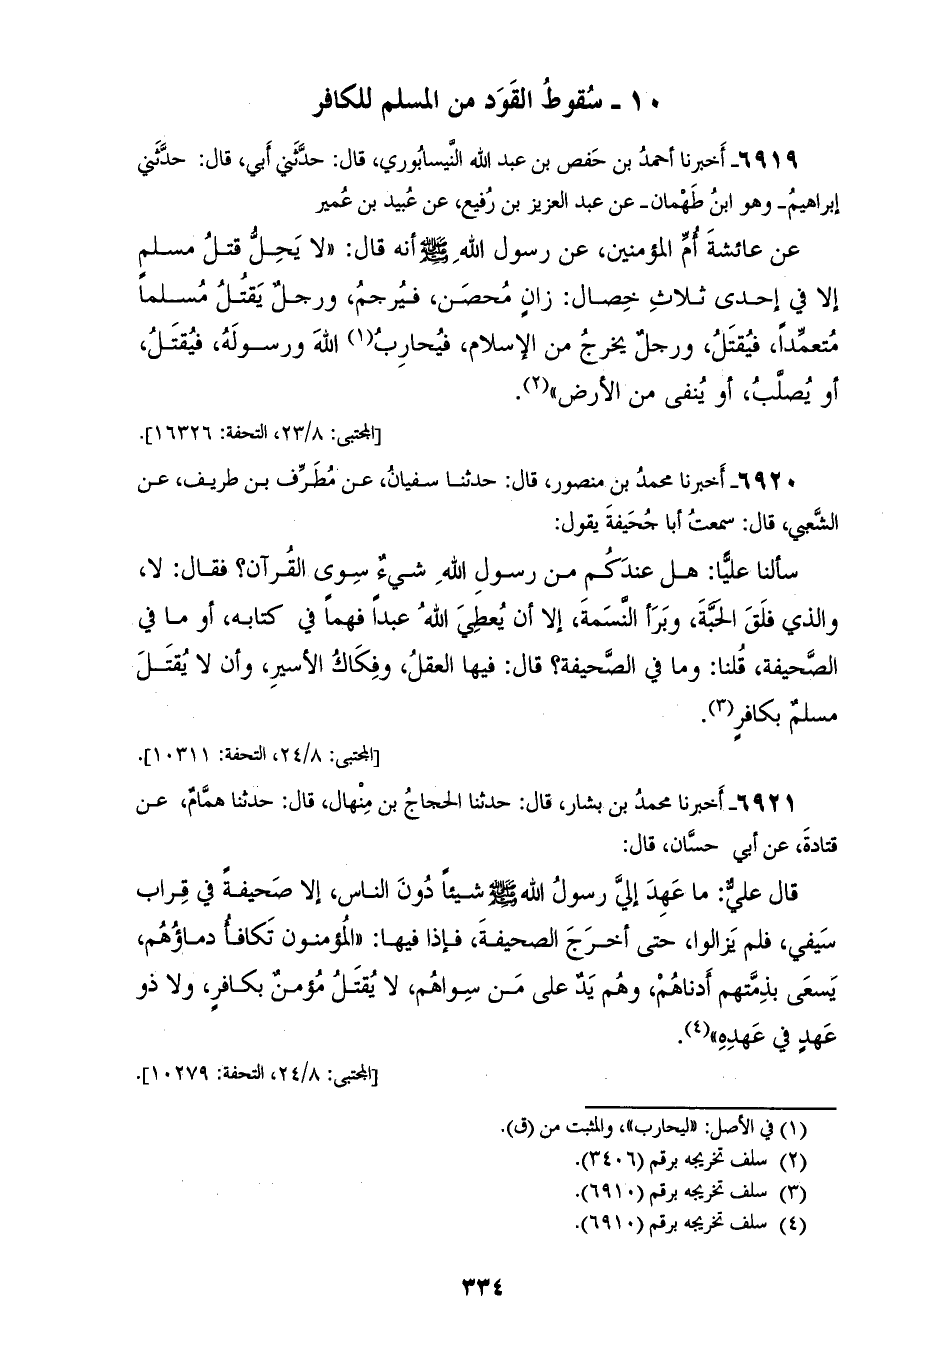 ١٠ ـ سُقوطُ القَوَد من المسلم للكافر
٦٩١٩ـ أَخبرنا أحمدُ بن حَفص بن عبد الله النَّيسابُوري، قال: حدَّثَني أَبي، قال: حدَّثَني
إبراهيمُ ـ وهو ابنُ طَهْمان ـ عن عبد العزيز بن رُفيع، عن عُبيد بن عُمير
عن عائشةَ أُمِّ المؤمنين، عن رسول اللهِ ﷺ أنه قال: «لا يَحِلُّ قتلُ مسلمٍ
إلا في إحدى ثلاثِ خِصال: زانٍ مُحصَن، فيُرجمُ، ورجلٌ يَقتُلُ مُسلماً
مُتعمِّداً، فيُقتَلُ، ورجلٌ يخرجُ من الإسلام، فيُحارِبُ(١) اللهَ ورسولَهُ، فيُقتَلُ،
أو يُصلَّبُ، أو يُنفى من الأرض»(٢).
[المجتبى: ٢٣/٨، التحفة: ١٦٣٢٦].
٦٩٢٠ـ أَخبرنا محمدُ بن منصور، قال: حدثنا سفيانُ، عن مُطَرِّف بن طريف، عن
الشَّعبي، قال: سمعتُ أبا جُحَيفةَ يقول:
سألنا عليًّا: هل عندَكُم من رسولِ اللهِ شيءٌ سِوى القُرآن؟ فقال: لا،
والذي فَلَقَ الحَبَّةَ، وبَرَأَ النَّسَمةَ، إلا أن يُعطِيَ اللهُ عبداً فهماً في كتابه، أو ما في
الصَّحيفة، قُلنا: وما في الصَّحيفة؟ قال: فيها العقلُ، وفِكَاكُ الأسيرِ، وأن لا يُقتَلَ
مسلمٌ بكافرٍ(٣).
[المجتبى: ٢٤/٨، التحفة: ١٠٣١١].
٦٩٢١ـ أَخبرنا محمدُ بن بشار، قال: حدثنا الحجاجُ بن مِنْهال، قال: حدثنا همَّامٌ، عن
قتادةَ، عن أبي حسَّان، قال:
قال عليٌّ: ما عَهِدَ إليَّ رسولُ الله ﷺ شيئاً دُونَ الناس، إلا صَحيفةً في قِراب
سَيفي، فلم يَزالوا، حتى أخرَجَ الصحيفةَ، فإذا فيها: «المُؤمنون تَكافأُ دماؤُهُم،
يَسعَى بذِمَّتهم أَدناهُمْ، وهُم يَدٌ على مَن سِواهُم، لا يُقتَلُ مُؤمنٌ بكافرٍ، ولا ذو
عَهدٍ في عَهدِهِ»(٤).
[المجتبى: ٢٤/٨، التحفة: ١٠٢٧٩].
(١) في الأصل: «ليحارب»، والمثبت من (ق).
(٢) سلف تخريجه برقم (٣٤٠٦).
(٣) سلف تخريجه برقم (٦٩١٠).
(٤) سلف تخريجه برقم (٦٩١٠).
٣٣٤